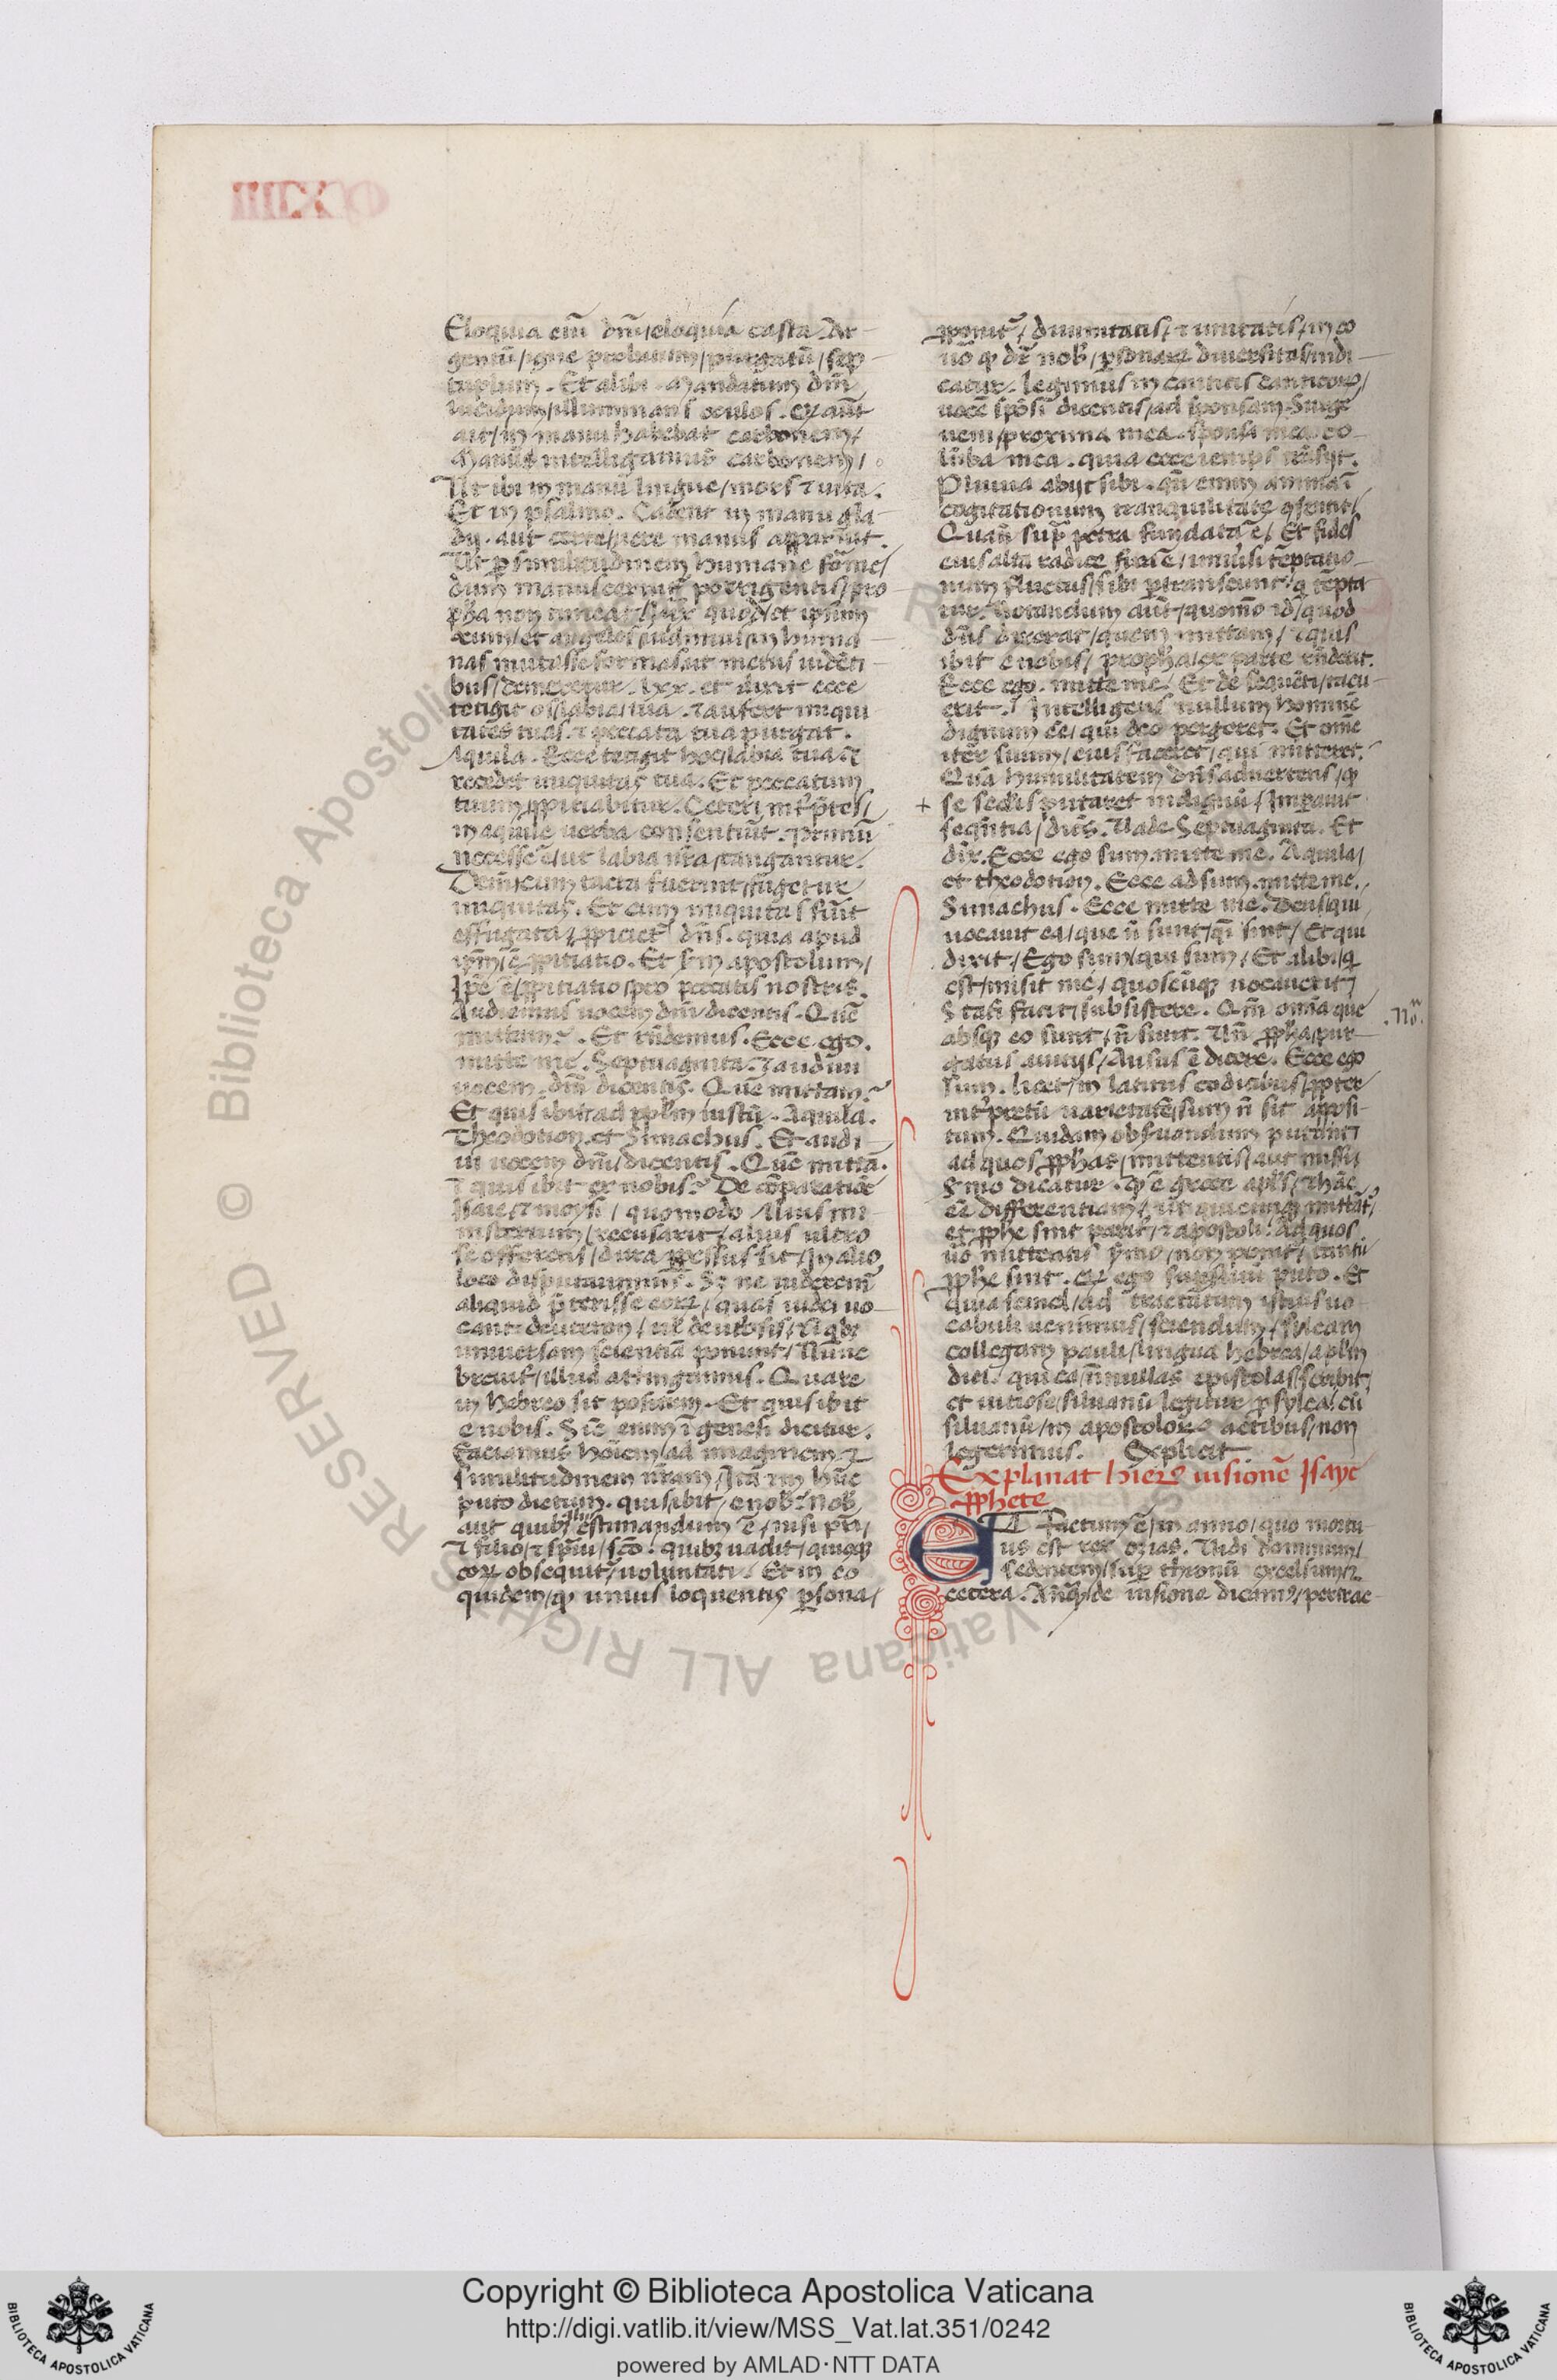 Eloquia eiū dn̄i/eloquia casta. Ar-
gentū/igne probatum/purgatū/sep-
tuplum. Et alibi. Mandatum dn̄i
lucidum/illuminans oculos. Q aūt
ait/in manu habebat carbonem/
Manus intelligamus carbonem/
Ut ibi in manu lingue/mors ⁊ uita.
Et in psalmo. Cadent in manu gla-
dij. aut certe/uere manus apparuit.
Ut ꝑ similitudinem humane forme/
dum manus cernitur porrigentis/pro
pha non timeat/Iuxta quod/et ipsum
deum/et angelos uidimus/in huma-
nas mutasse formas/ut metus uidēti-
bus/demeretur. lxx. et dixit ecce
tetigit
labia/tua. ⁊ aufert iniqui
tates tuas. ⁊ peccata tua purgat.
Aquila. Ecce tetigit hoc/labia tua ⁊
recedet iniquitas tua. Et peccatum
tuum ꝓpitiabitur. Ceteri int̄p̄tes/
in aquile uerba consentiūt. Primū
necesse ē/ut labia nr̄a/tangantur.
Dein/cum tacta fuerint/fugetur
iniquitas. Et cum iniquitas fu̅it
effugata/ꝓpiciet dn̄s. quia apud
ipm̄/ē ꝓpitiatio. Et scdm apostolum/
Ipse ē/ꝓpitiatio/pro peccatis nostris.
Audiemus uocem dn̄i dicentis. Quē
mittam. Et rn̄demus. Ecce ego.
mitte me. Septuaginta. ⁊ audiui
uocem dn̄i dicentis. Quē mittam?
Et quis ibit/ad pplm̄ istū. Aquila.
Theodotion. et Simachus. Et audi-
ui uocem dn̄i/dicentis. Quē mittā.
⁊ quis ibit ex nobis? De cōparatiōe
Isaie/⁊ moysi/quomodo alius mi-
nisterium/recusarit/alius ultro
se offerens/dura ꝑpessus sit/In alio
loco disputauimus. Sꝫ ne uideremr̄
aliquid p̄terisse eoꝝ/quas iudei uo-
cant
universam scientiā ponunt/Nunc
breuit̄/illud attingimus. Quare
in hebreo sit positum. Et quis ibit
e nobis. Sic enim ī genesi dicitur.
Faciamus hoīem/ad imaginem ⁊
similitudinem nr̄am/Ita ⁊ in hūc
puto dictum. quis ibit/e nob. Nob
aut quibꝫ estimandum ē/nisi pr̄i/
⁊ filio/⁊ spūi/scō. quibꝫ uadit/quisqꝫ
eoꝝ obsequit̄/uoluntati. Et in eo
quidem/ꝙ unius loquentis ꝑsona/
ꝓponitr̄/diuinitatis/⁊ unitatis/in eo
uō ꝙ dr̄ nob/ꝑsonarꝫ diuersitas/indi-
catur. Legimus in canticis canticoꝝ/
uocē spōsi dicentis/ad sponsam. Surge
ueni/proxima mea. sponsa mea. co-
lūba mea. quia ecce iemps trāsijt.
Pluuia abijt sibi. qn̄ enim anima ī
cogitationum tranquilitate
Quan̄ sup̄ petra fundata ē/Et fides
eius alta radice fixa ē/uniūsi tēptatio-
num fluctus/sibi ꝑtranseunt/
tur. Notandum aūt/quomō id/quod
dn̄s dixerat/quem mittam/⁊ quis
ibit e nobis/propha/ex parte rn̄derit.
Ecce ego. mitte me/Et de sequēti/tacu-
erit. Intelligens nullum hominē
dignum eē/qui deo pergeret. Et om̄e
iter suum/eius faceret/qui mitteret.
Quā humilitatem dn̄s aduertens/ꝙ
+ se sedis putaret indignū/Imperauit
seqn̄tia/dicēs. Uade Septuaginta. Et
dix. Ecce ego sum. mitte me. Aquila/
et theodotion. Ecce adsum. mitte me.
Simachus. Ecce mitte me. Deus qui
uocauit ea/que n̄ sunt/qi sint/Et qui
dixit/Ego sum/qui sum/Et alibi/q
est/misit me/quoscūqꝫ uocauerit/
Stati facit/subsistere. Qm̄ omīa que
absqꝫ eo sunt/n̄ sunt. Un̄ ꝓpha/pur-
gatus uitijs/Ausus ē dicere. Ecce ego
sum. licet/in latinis codicibus/ꝓpter
int̄pretū uarietatē/sum n̄ sit apposi-
tum. Quidam obs̄uandum putant
ad quos ꝓphas/mittentis/aut missi
s̄mo dicatur. qd̄ ē grece apl̄s/⁊ hāc
eē differentiam/ut quicunqꝫ mittāt/
et ꝓphe sint parit̄/⁊ apostoli. Ad quos
uō mittentis s̄mo/non ponit̄/tantū
ꝓphe sint. Q ego supfluū puto. Et
quia semel/ad tractatum istius uo-
cabuli uenimus/sciendum/sylcam
collegam pauli/lingua hebrea/aplm̄
dici. qui cū eo nn̄ullas epistolas/scribit/
et uitiose/siluanū legitur ꝑ sylca/cū
siluanū/in apostoloꝝ actibus/non
legerimus. Explicit
.No.
Explanat hieꝝ uisionē Isaye
ꝓphete
ET factum ē/in anno/quo mortu-
us est rex ozias. Uidi dominum/
sedentem/sup thronū excelsum/⁊
cetera. Anteqꝫ/de uisione dicam9/pertrac-
Copyright © Biblioteca Apostolica Vaticana
http://digi.vatlib.it/view/MSS_Vat.lat.351/0242
powered by AMLAD·NTT DATA
BIBLIOTECA APOSTOLICA VATICANA
BIBLIOTECA APOSTOLICA VATICANA
© Biblioteca Apostolica Vaticana ALL RIGHTS RESERVED